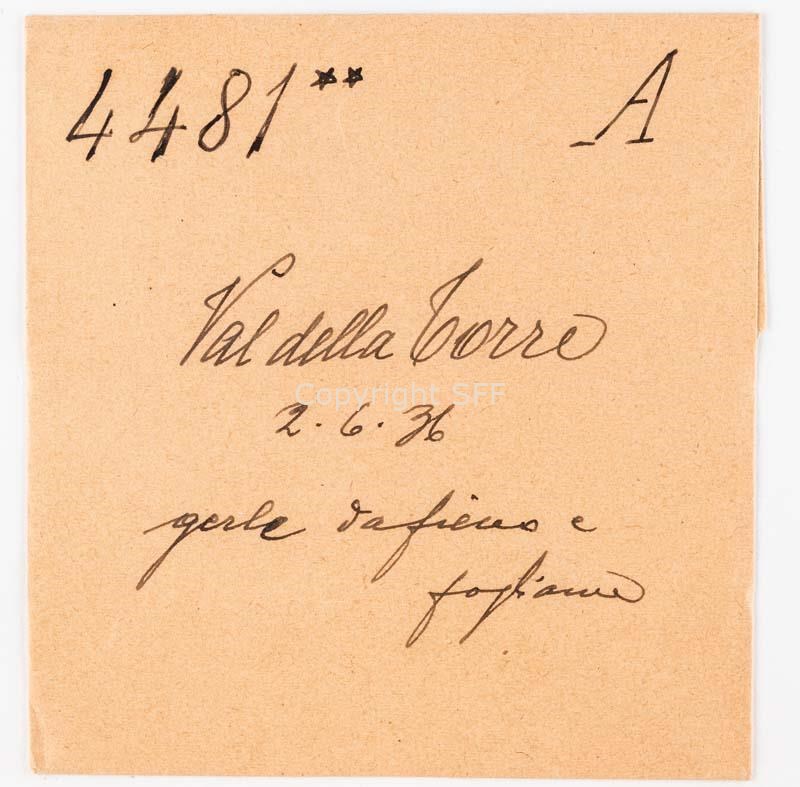 4481** A
Val della Torre
Copyright SFF
2.6.36
gerle da fieno e
fogliame